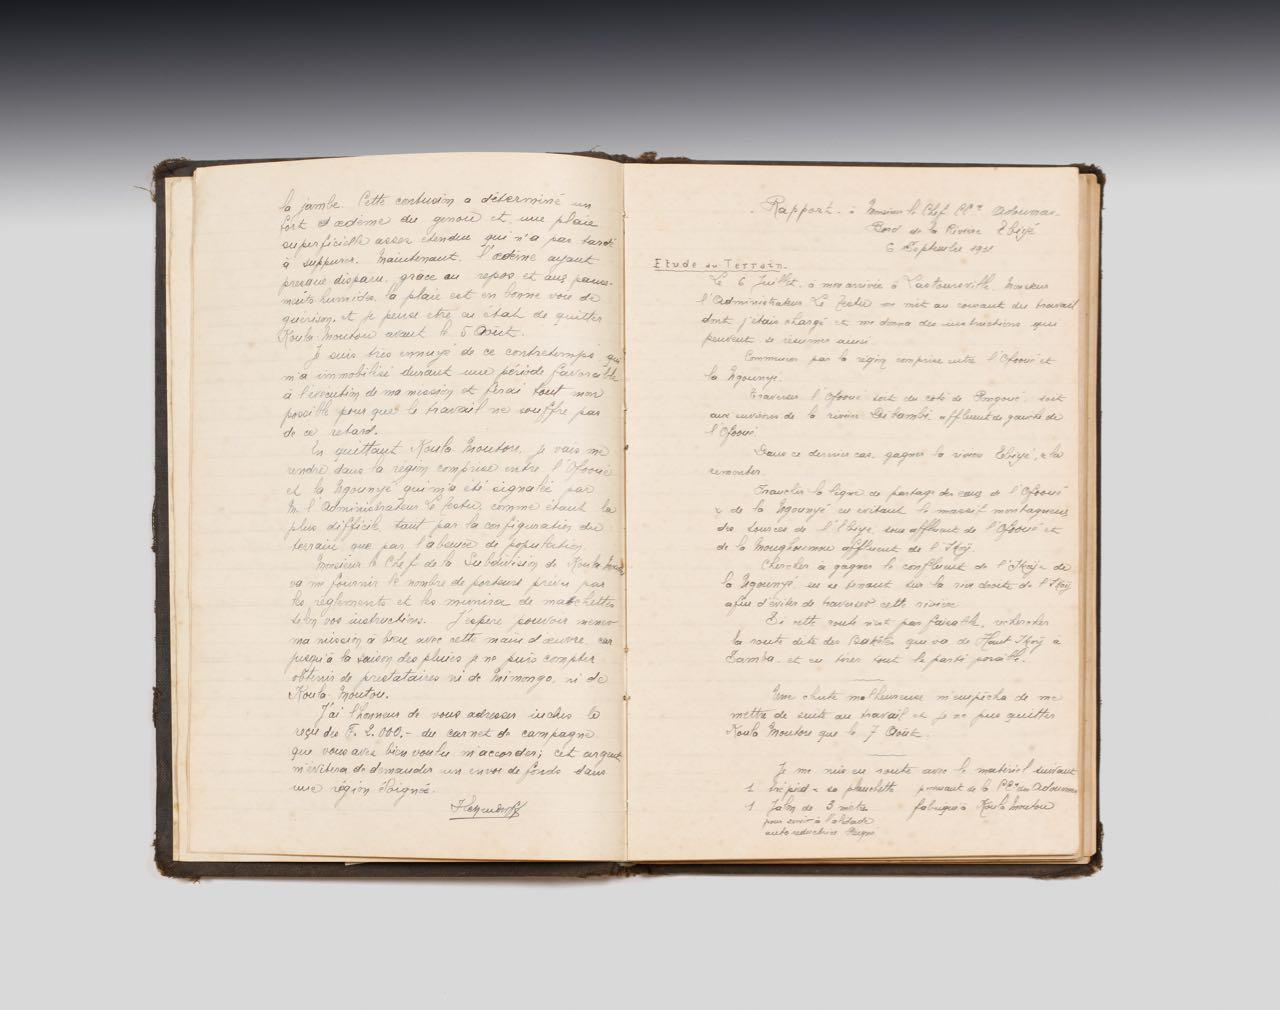 la jambe. Cette contusion a déterminé un
fort oedème du genou et une plaie
superficielle assez étendue qui n'a pas tardé
à suppurer. Maintenant, l'oedème ayant
presque disparu, grâce au repos et aux panse-
ments humides, la plaie est en bonne voie de
guérison, et je pense être en état de quitter
Koula-Moutou avant le 5 Août.
Je suis très ennuyé de ce contretemps qui
m'a immobilisé durant une période favorable
à l'exécution de ma mission et ferai tout mon
possible pour que le travail ne souffre pas
de ce retard.
En quittant Koula-Moutou, je vais me
rendre dans la région comprise entre l'Ofooué
et la Ngounyé qui m'a été signalée par
M. l'Administrateur Le Testu, comme étant la
plus difficile, tant par la configuration du
terrain, que par l'absence de population.
Monsieur le Chef de la Subdivision de Koula-Moutou
va me fournir le nombre de porteurs prévu par
les règlements et les munira de matchettes
selon vos instructions. J'espère pouvoir mener
ma mission à bien avec cette main d'oeuvre, car
jusqu'à la saison des pluies je ne puis compter
obtenir de prestataires ni de Mimongo, ni de
Koula-Moutou.
J'ai l'honneur de vous adresser inclus le
reçu des F. 2.000.- du carnet de campagne
que vous avez bien voulu m'accorder; cet argent
m'évitera de demander un envoi de fonds dans
une région éloignée.
Rapport à Monsieur le Chef Adoumas
Bord de la Rivière Ebiyé
6 Septembre
Etude du Terrain.
Le 6 Juillet, à mon arrivée à Lastoursville, Monsieur
l'Administrateur Le Testu me mit au courant du travail
dont j'étais chargé et me donna des instructions qui
peuvent se résumer ainsi:
Commencer par la région comprise entre l'Ofooué et
la Ngounyé.
Traverser l'Ofooué soit du côté de soit
aux environs de la rivière affluent de gauche de
l'Ofooué.
Dans ce dernier cas, gagner la rivière Ebiyé, et la
remonter.
Franchir la ligne de partage des eaux de l'Ofooué
& de la Ngounyé en évitant le massif montagneux
des sources de l'Ebiyé, sous affluent de l'Ofooué et
de la affluent de l'Ikoÿ.
Chercher à gagner le confluent de l'Ikoÿ & de
la Ngounyé en se tenant sur la rive droite de l'Ikoÿ
afin d'éviter de traverser cette rivière.
Si cette route n'est pas faisable, rechercher
la route dite des que va de Haut Ikoÿ à
Samba, et en tirer tout le parti possible.
Une chute malheureuse m'empêcha de me
mettre de suite au travail et je ne pus quitter
Koula Moutou que le 7 Août.
Je me mis en route avec le matériel suivant
1 trépied & sa planchette provenant de la Adoumas
1 Jalon de 3 mètres fabriqué à Koula Moutou
pour servir à l'alidade
autoréductrice